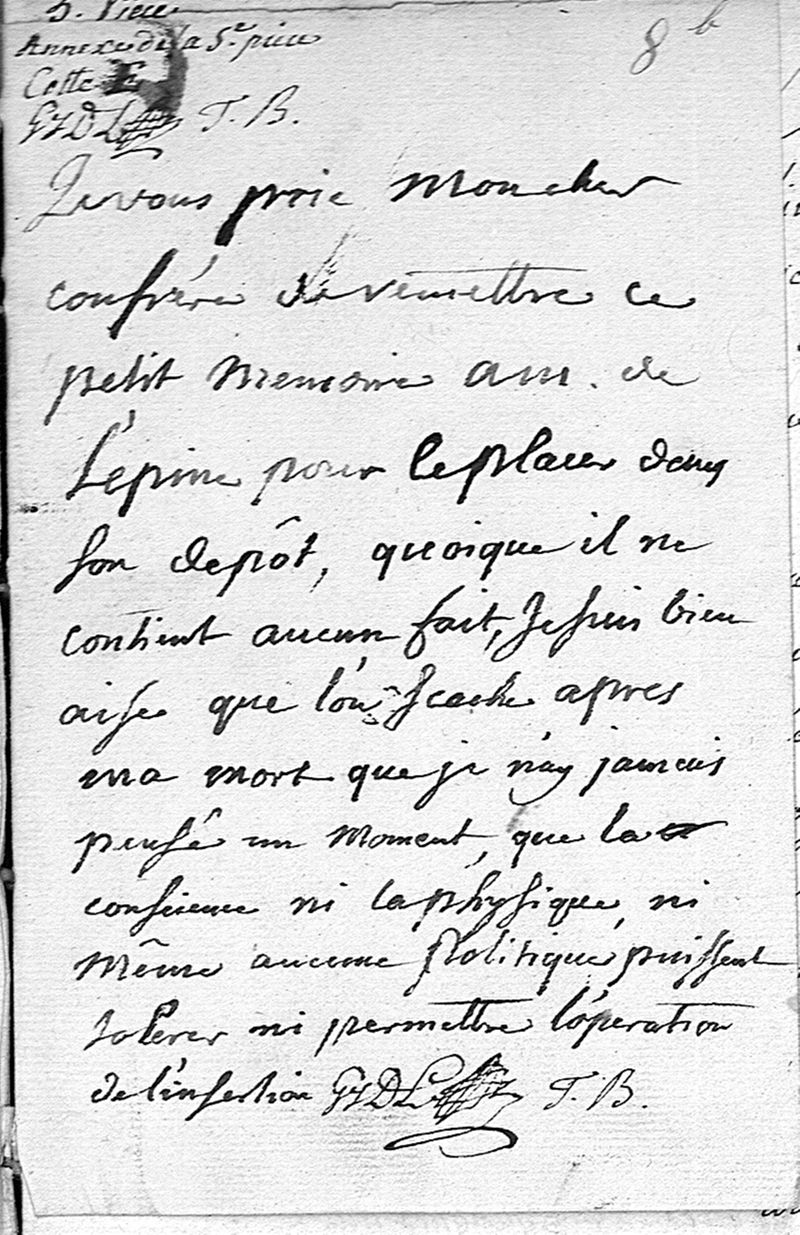 5. Piece
Annexe de la 5.e piece
Cotte
G J D L T. B.
8 b
Je vous prie mon cher
confrére de remettre ce
petit memoire a m. de
L'épine pour le placer dans
son depôt, quoique il ne
contient aucun fait, Je suis bien
aise que l'on scache apres
ma mort que je n'ay jamais
pensé un moment, que la
conscience ni la physique, ni
même aucune politique puissent
tolerer ni permettre l'opération
de l'insertion G J D L T. B.